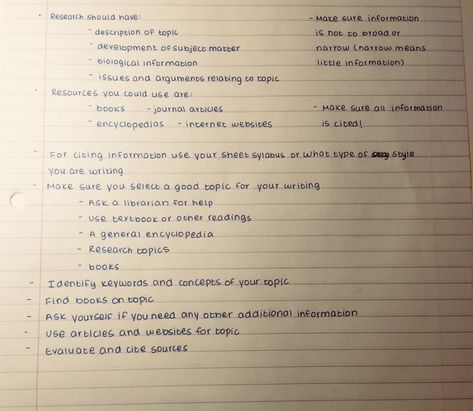 · Research should have:
- description of topic
- development of subject matter
- biological information
- issues and arguments relating to topic
- Make sure information
is not to broad or
narrow (narrow means
little information)
· Resources you could use are:
- books - journal articles
- encyclopedias - internet websites
- Make sure all information
is cited!
- For citing information use your sheet sylabus or what type of style
you are writing
- Make sure you select a good topic for your writing
- Ask a librarian for help
- Use textbook or other readings
- A general encyclopedia
- Research topics
- books
- Identify keywords and concepts of your topic
- Find books on topic
- Ask yourself if you need any other additional information
- Use articles and websites for topic
- Evaluate and cite sources